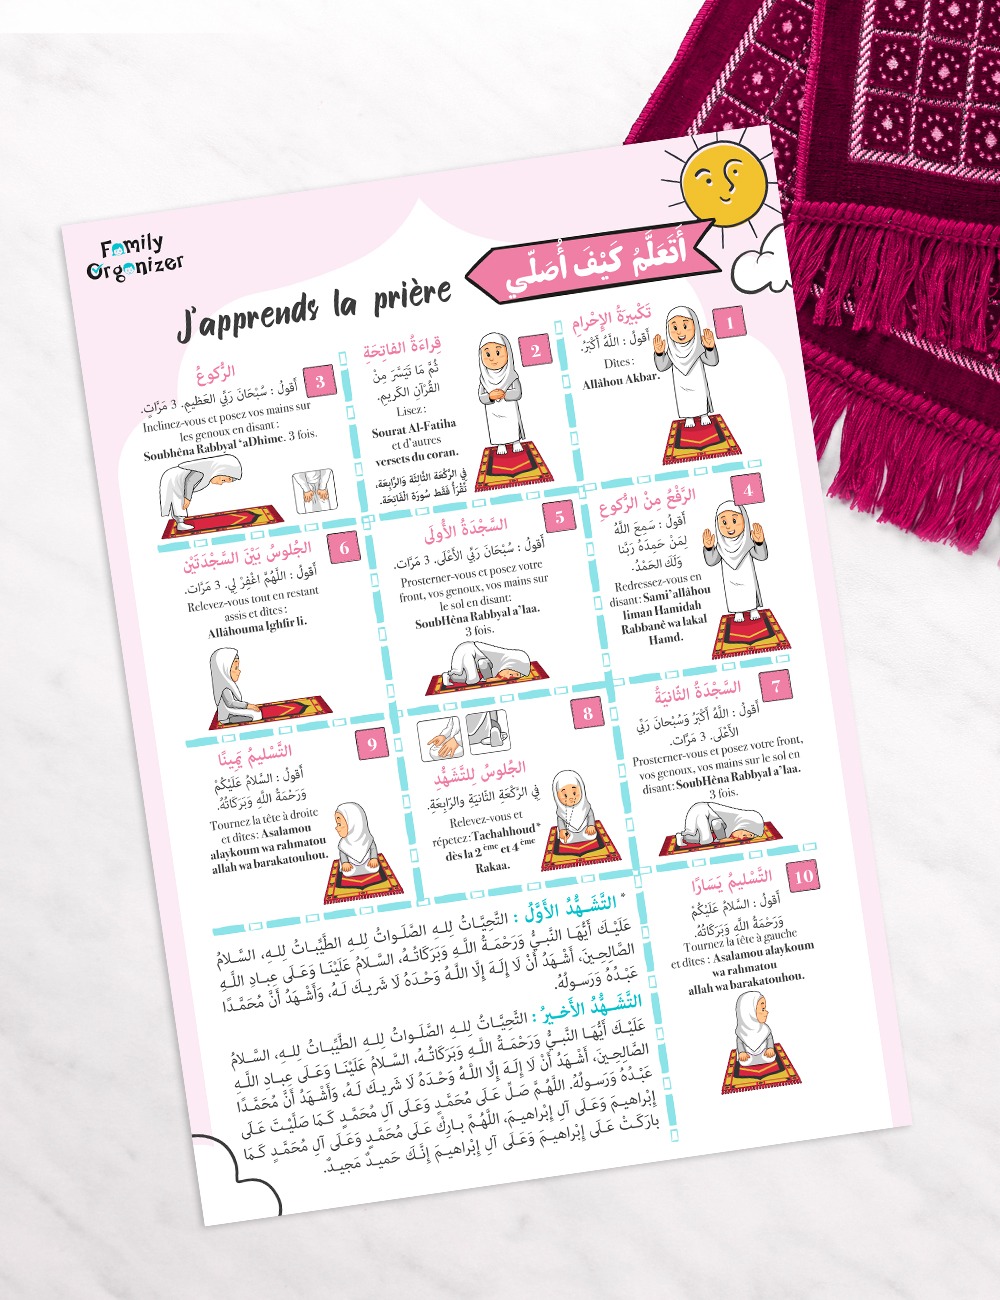 Family
Organizer
أَتَعَلَّمُ كَيْفَ أُصَلّي
J'apprends la prière
1
تَكْبِيرَةُ الإِحْرامِ
أَقولُ : اللَّهُ أَكْبَرُ.
Dîtes :
Allâhou Akbar.
2
قِراءَةُ الفاتِحَةِ
ثُمَّ مَا تَيَسَّرَ مِنْ
القُرْآنِ الكَريمِ.
Lisez :
Sourat Al-Fatiha
et d'autres
versets du coran.
في الرَّكْعَةِ الثّالِثَةِ وَالرّابِعَةِ،
نَقْرَأُ فَقَط سُورَةَ الْفَاتِحَةِ.
3
الرُّكوعُ
أَقولُ : سُبْحَانَ رَبِّيَ العَظيمِ. 3 مَرَّاتٍ.
Inclinez-vous et posez vos mains sur
les genoux en disant :
Soubhêna Rabbyal ‘aDhime. 3 fois.
4
الرَّفْعُ مِنْ الرُّكوعِ
أَقولُ : سَمِعَ اللَّهُ
لِمَنْ حَمِدَهُ رَبَّنا
وَلَكَ الحَمْدُ.
Redressez-vous en
disant: Sami’allâhou
liman Hamidah
Rabbanê wa lakal
Hamd.
5
السَّجْدَةُ الأُولَى
أَقولُ : سُبْحَانَ رَبِّيَ الأَعْلَى. 3 مَرَّات.
Prosterner-vous et posez votre
front, vos genoux, vos mains sur
le sol en disant:
SoubHêna Rabbyal a’laa.
3 fois.
6
الجُلوسُ بَيْنَ السَّجْدَتَيْنِ
أَقولُ : اللَّهُمَّ اغْفِرْ لِي. 3 مَرَّات.
Relevez-vous tout en restant
assis et dîtes :
Allâhouma Ighfir li.
7
السَّجْدَةُ الثّانِيَةُ
أَقولُ : اللَّهُ أَكْبَرُ وَسُبْحانَ رَبِّيَ
الأَعْلَى. 3 مَرَّات.
Prosterner-vous et posez votre front,
vos genoux, vos mains sur le sol en
disant: SoubHêna Rabbyal a’laa.
3 fois.
8
الجُلوسُ لِلتَّشَهُّدِ
فِي الرَّكْعَةِ الثّانِيَةِ والرّابِعَة.
Relevez-vous et
répetez: Tachahhoud*
dès la 2 ème et 4 ème
Rakaa.
9
التَّسْليمُ يَمِينًا
أَقولُ : السَّلامُ عَلَيْكُمْ
وَرَحْمَةُ اللَّهِ وَبَرَكَاتُهُ.
Tournez la tête à droite
et dîtes: Asalamou
alaykoum wa rahmatou
allah wa barakatouhou.
10
التَّسْليمُ يَسَارًا
أَقولُ : السَّلامُ عَلَيْكُمْ
وَرَحْمَةُ اللَّهِ وَبَرَكَاتُهُ.
Tournez la tête à gauche
et dîtes : Asalamou alaykoum
wa rahmatou
allah wa barakatouhou.
* التَّشَـهُّدُ الأَوَّلُ : التَّحِيَّـاتُ لِلـهِ الصَّلَـواتُ لِلـهِ الطَّيِّبـاتُ لِلـهِ، السَّـلامُ
عَلَيْـكَ أَيُّهَـا النَّبـيُّ وَرَحْمَـةُ اللَّـهِ وَبَرَكَاتُـهُ، السَّـلامُ عَلَيْنَـا وَعَلَـى عِبـادِ اللَّـهِ
الصَّالِحِيـنَ، أَشْـهَدُ أَنْ لَا إِلَـهَ إِلَّا اللَّـهُ وَحْـدَهُ لَا شَريـكَ لَـهُ، وَأَشْـهَدُ أَنَّ مُحَمَّـدًا
عَبْـدُهُ وَرَسـولُهُ.
التَّشَـهُّدُ الأَخيـرُ : التَّحِيَّـاتُ لِلـهِ الصَّلَـواتُ لِلـهِ الطَّيِّبـاتُ لِلـهِ، السَّـلامُ
عَلَيْـكَ أَيُّهَـا النَّبـيُّ وَرَحْمَـةُ اللَّـهِ وَبَرَكَاتُـهُ، السَّـلامُ عَلَيْنَـا وَعَلَـى عِبـادِ اللَّـهِ
الصَّالِحِيـنَ، أَشْـهَدُ أَنْ لَا إِلَـهَ إِلَّا اللَّـهُ وَحْـدَهُ لَا شَريـكَ لَـهُ، وَأَشْـهَدُ أَنَّ مُحَمَّـدًا
عَبْـدُهُ وَرَسـولُهُ. اللَّهُـمَّ صَـلِّ عَلَـى مُحَمَّـدٍ وَعَلَـى آلِ مُحَمَّـدٍ كَـمَا صَلَّيْـتَ عَلَـى
إِبْراهيـمَ وَعَلَـى آلِ إِبْراهيـمَ، اللَّهُـمَّ بـارِكْ عَلَـى مُحَمَّـدٍ وَعَلَـى آلِ مُحَمَّـدٍ كَـمَا
بارَكـتْ عَلَـى إِبْراهيـمَ وَعَلَـى آلِ إِبْراهيـمَ إِنَّـكَ حَميـدٌ مَجيـدٌ.